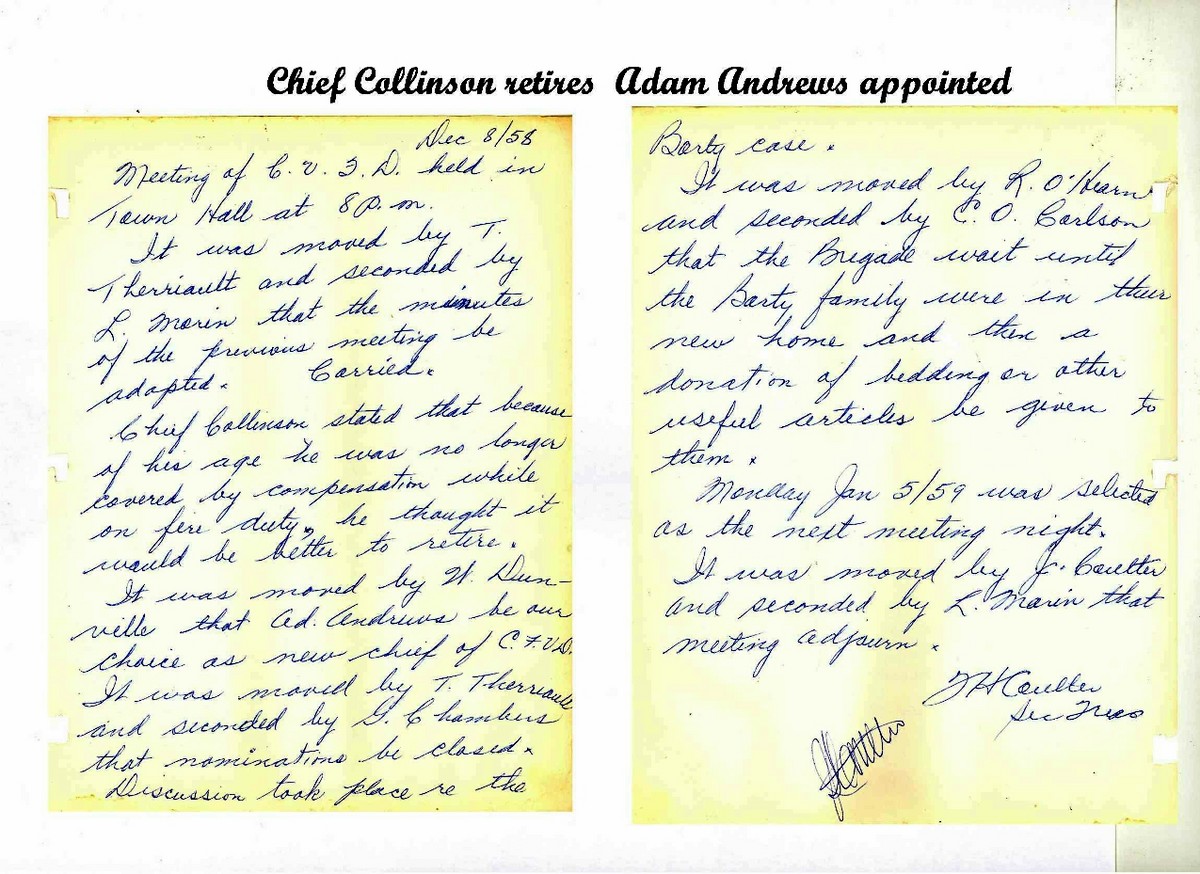 Chief Collinson retires Adam Andrews appointed
Dec 8/58
Meeting of C. V. F. D. held in
Town Hall at 8 P.m.
It was moved by T.
Therriault and seconded by
L. Morin that the minutes
of the previous meeting be
adopted. Carried.
Chief Collinson stated that because
of his age he was no longer
covered by compensation while
on fire duty, he thought it
would be better to retire.
It was moved by W. Dun-
ville that Ad. Andrews be our
choice as new chief of C.F.V.D.
It was moved by T. Therriault
and seconded by G. Chambers
that nominations be closed.
Discussion took place re the
Barty case.
It was moved by R. O'Hearn
and seconded by C. O. Carlson
that the Brigade wait until
the Barty family were in their
new home and then a
donation of bedding or other
useful articles be given to
them.
Monday Jan 5/59 was selected
as the next meeting night.
It was moved by J. Coulter
and seconded by L. Marin that
meeting adjourn.
Coulter
Sec Treas